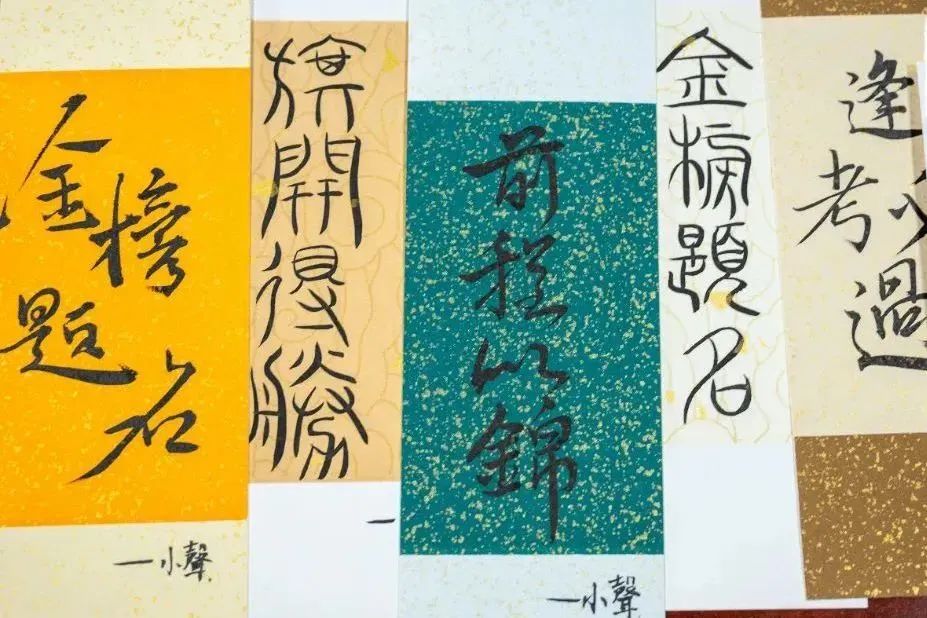 金榜题名
一小聲
旗開得勝
一
前程以錦
一小聲
金榜題名
逢考過